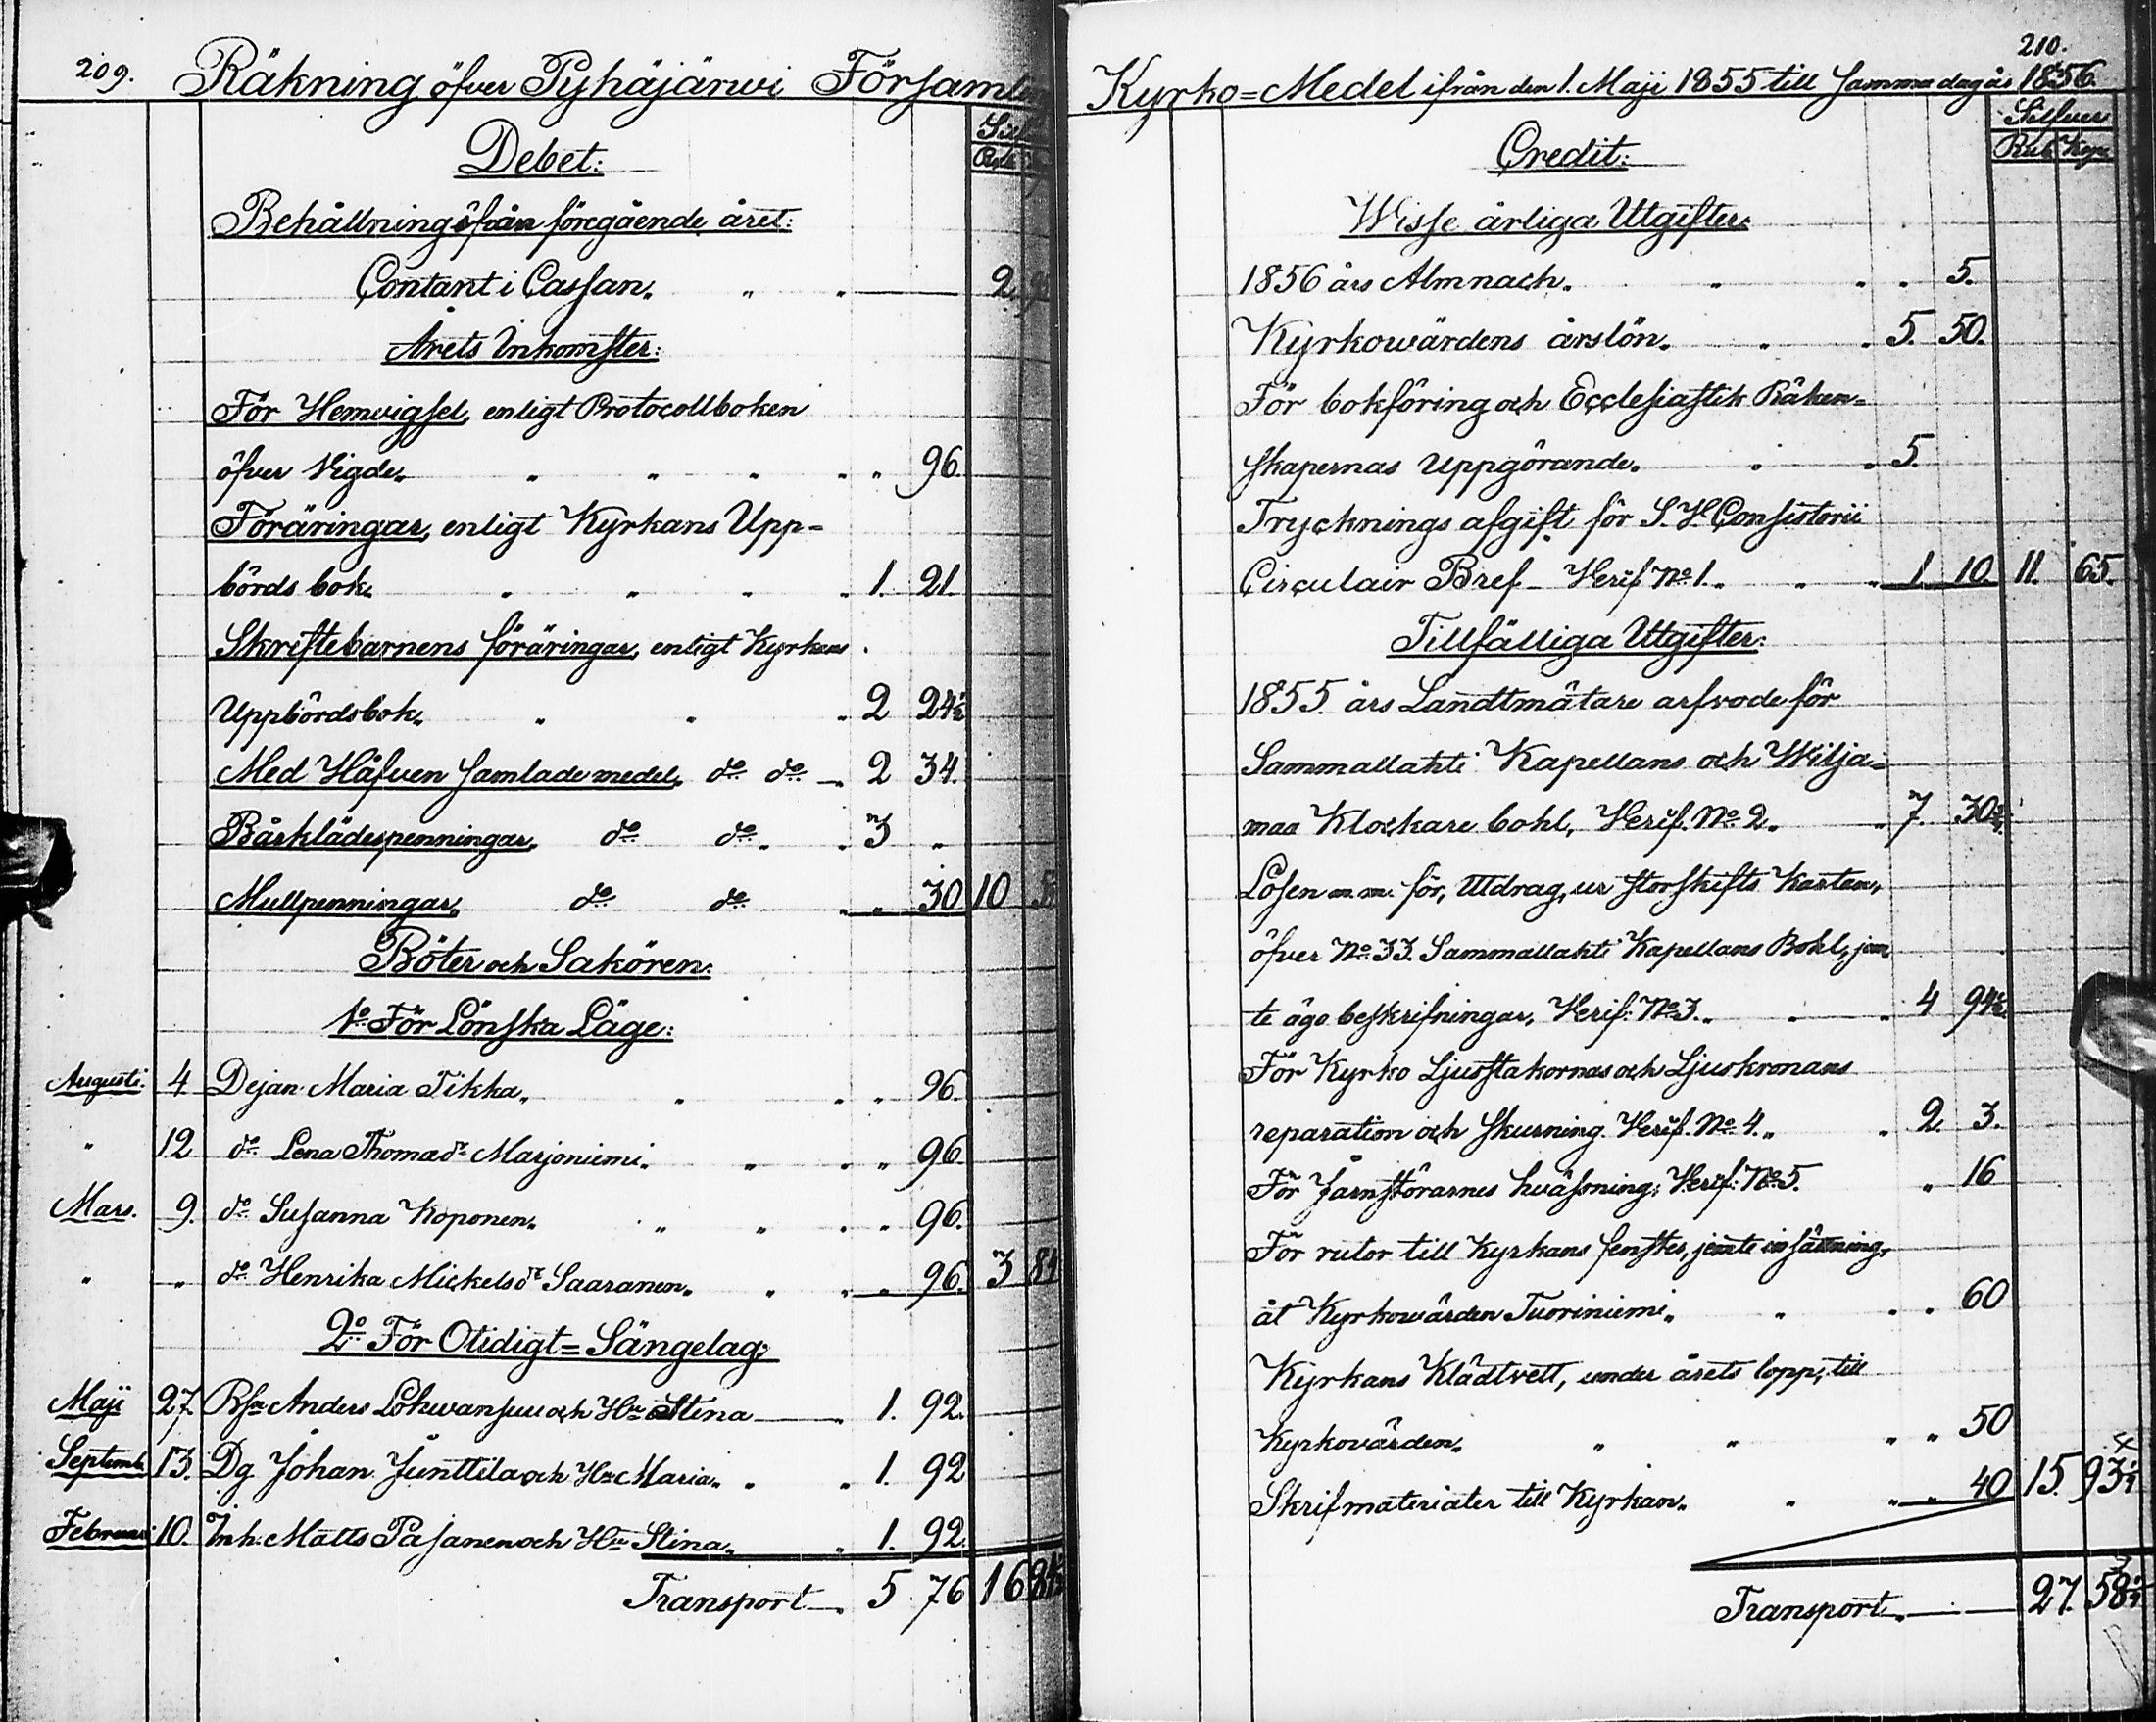 209. Räkning öfver Pyhäjärwi Församl
Silf
Rub
Debet:
Behållning ifrån föregående året:
Contant i Cassan. " " 2.
Årets Inkomster:
För Hemvigsel, enligt Protocollboken
öfver Vigde. " " " " " 96.
Föräringar, enligt Kyrkans Upp=
börds bok. " " " " 1. 21.
Skriftebarnens föräringar, enligt Kyrkans
Uppbördsbok. " " " 2 24½
Med Håfven samlade medel, do do 2 34.
Bårklädespenningar, do do " 3 "
Mullpenningar, do do " " 30 10
Böter och Saköresn:
1o För Lönska Läge:
Augusti. 4 Dejan Maria Tikka. " " " 96.
" 12 do Lena Thomasdr Marjoniemi. " " " 96.
Mars. 9. do Susanna Koponen. " " " " 96.
" " do Henrika Mickelsdr Saaranen. " " " 96. 3 84
2o För Otidigt=Sängelag:
Maji 27. Anders och Hu Stina " 1. 92.
Septemb. 13. Dg Johan Junttila och Hu Maria. " " 1. 92
Februari 10. Inh: Matts Pasanen och Hu Stina. " 1. 92.
Transport. 5 76 16 81½
210.
Kyrko=Medel ifrån den 1. Maji 1855 till samma dag år 1856.
Silfver
Rub Kop
Credit:
Wisse årliga Utgifter:
1856 års Almnach. " " " 5.
Kyrkowärdens årslön. " " 5. 50.
För bokföring och Ecclesiastik Räken=
skapernas uppgörande. " " 5.
Trycknings afgift för S. V. Consistorii
Circulair Bref _ Verif No 1. " " 1. 10. 11. 65.
Tillfälliga Utgifter:
1855. års Landtmätare arfvode för
Sammallahti Kapellans och Wilja=
maa Klockare bohl, Verif. No. 2. " 7. 30¾
Lösen m.m. för, Utdrag, ur storskifts Kartan,
öfver No. 33. Sammallahti Kapellans Bohl, jem
te ägo beskrifningar, Verif: No 3. " " 4 94½
För Kyrko Ljusstakornas och Ljuskronans
reparation och skurning. Verif. No. 4. " 2. 3.
För Järnstörarnes hväsning: Verif: No 5. " 16
För rutor till Kyrkans fenster, jemte insättning,
åt Kyrkowärden Tuoriniemi. " " " 60
Kyrkans Klädtvett, under årets lopp, till
Kyrkovärden. " " " " 50
Skrifmaterialer till Kyrkan. " " " 40 15. 93¼
Transport. 27. 58